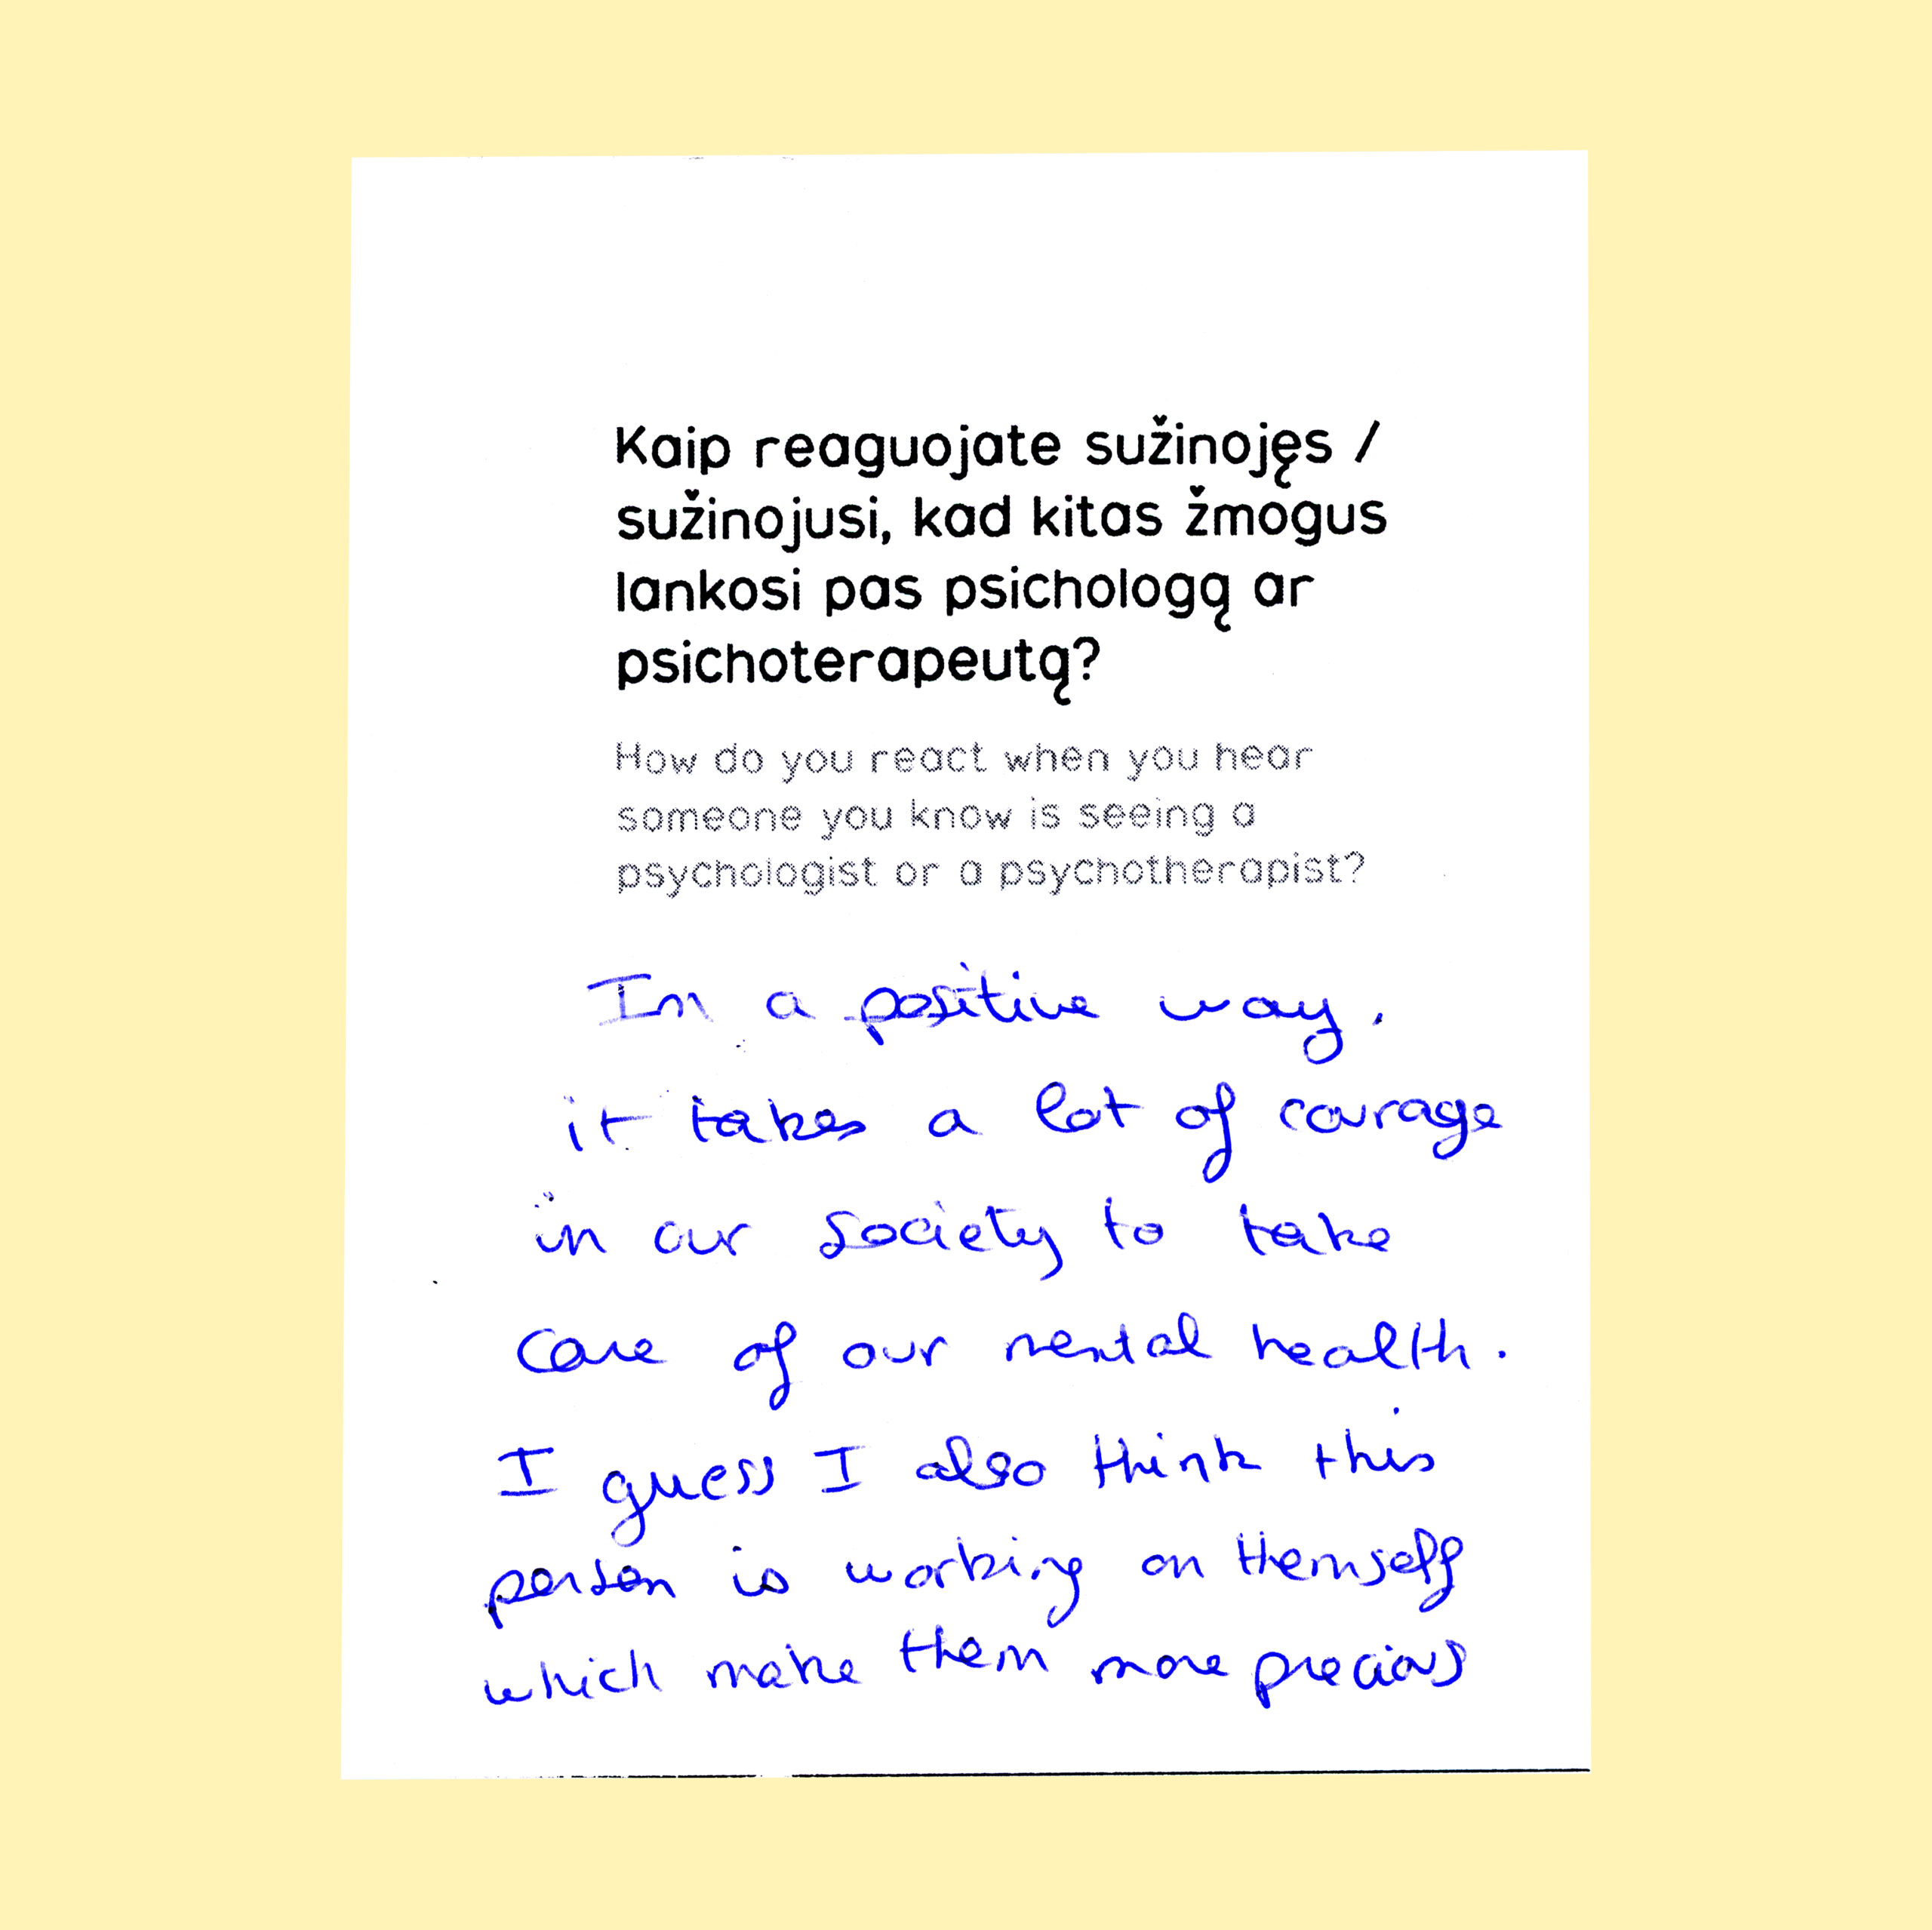 Kaip reaguojate sužinojęs /
sužinojusi, kad kitas žmogus
lankosi pas psichologą ar
psichoterapeutą?
How do you react when you hear
someone you know is seeing a
psychologist or a psychotherapist?
In a positive way.
it takes a lot of courage
in our society to take
care of our mental health.
I guess I also think this
person is working on themself
which make them more precious